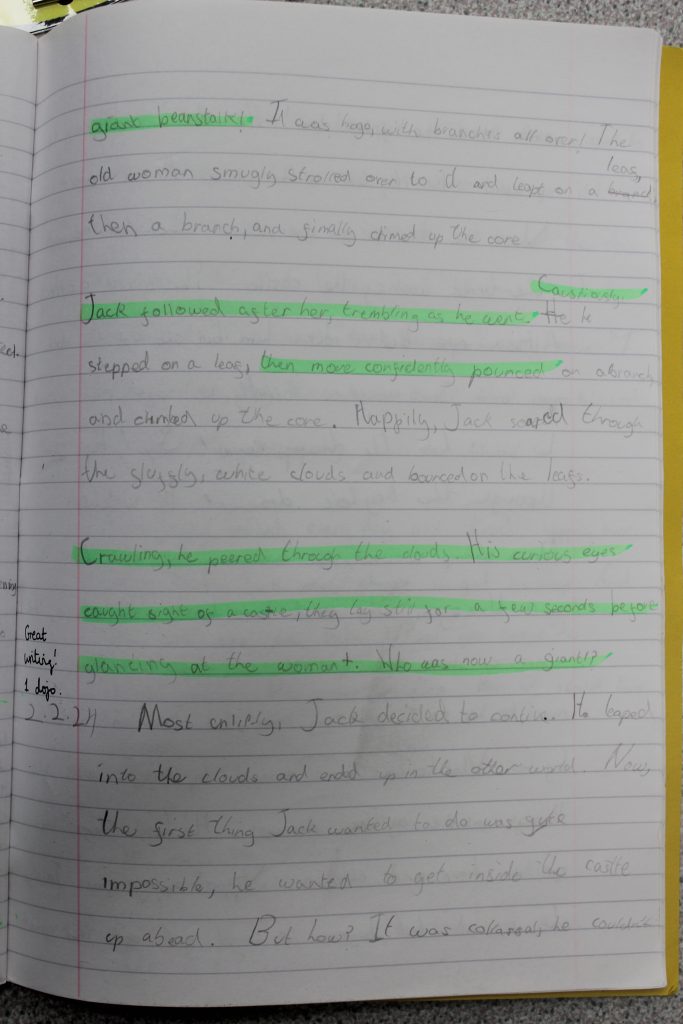 giant beanstalk! It was hoge, with branches all over! The
old woman smugly strolled over to it and leapt on a leag,
then a branch, and finally climed up the core
Jack followed after her, trembling as he went. Caustiously, he
stepped on a leag, then more confidently pounced on a branch
and climbed up the core. Happily, Jack soared through
the fluffly, white clouds and bounced on the leafs.
Crawling, he peered through the clouds. His curious eyes
caught sight of a castle, they lay still for a few seconds before
glancing at the woman. Who was now a giant!?
Great
writing!
1 dojo.
2.2.24 Most unlikly, Jack decided to contin. He leaped
into the clouds and endd up in the other world. Now,
the first thing Jack wanted to do was qyte
impossible, he wanted to get inside the castle
up ahead. But how? It was collassal, he couldn't